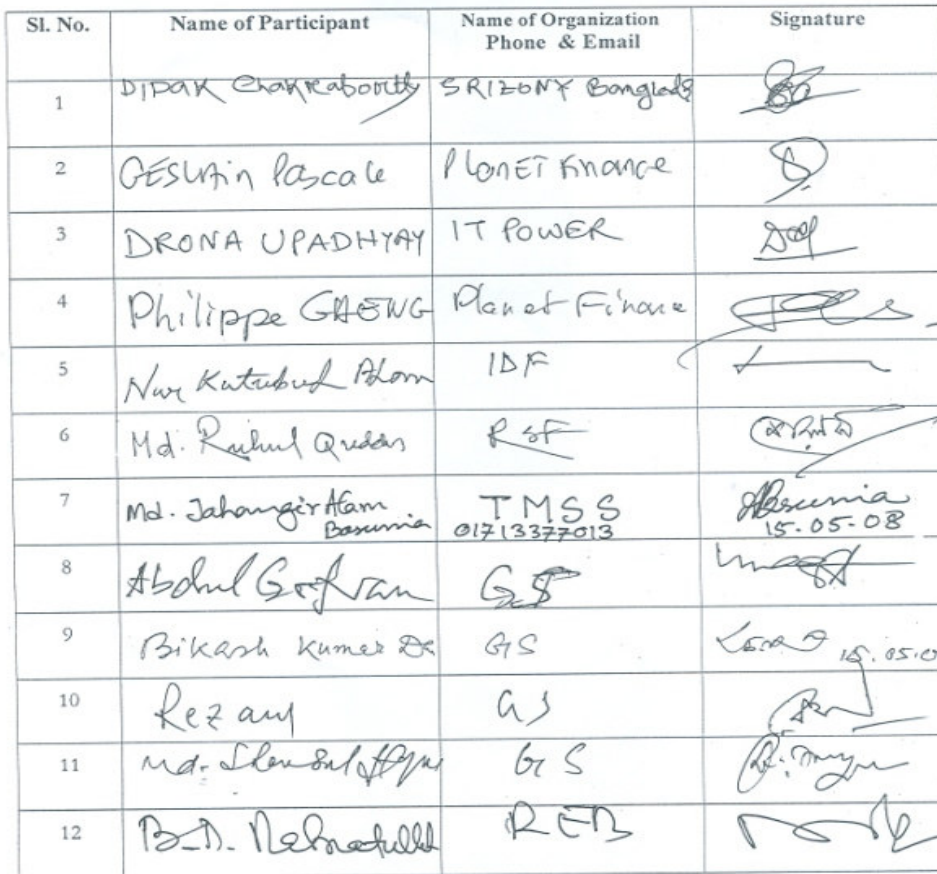 Sl. No. Name of Participant Name of Organization Signature
Phone & Email
1 DIPAK Chakraborty SRIZONY Banglade
2 GESLAIN Pascale PlanET Finance
3 DRONA UPADHYAY IT POWER
4 Philippe GAENG Planet Finance
5 Nur Kutubud Alam IDF
6 Md. Ruhul Quddus RSF
7 Md. Jahangir Alam TMSS
Basunia 01713377013 15-05-08
8 Abdul Gofran GS
9 Bikash Kumar De GS 15.05.0
10 GS
11 Md. GS
12 B.D. REB